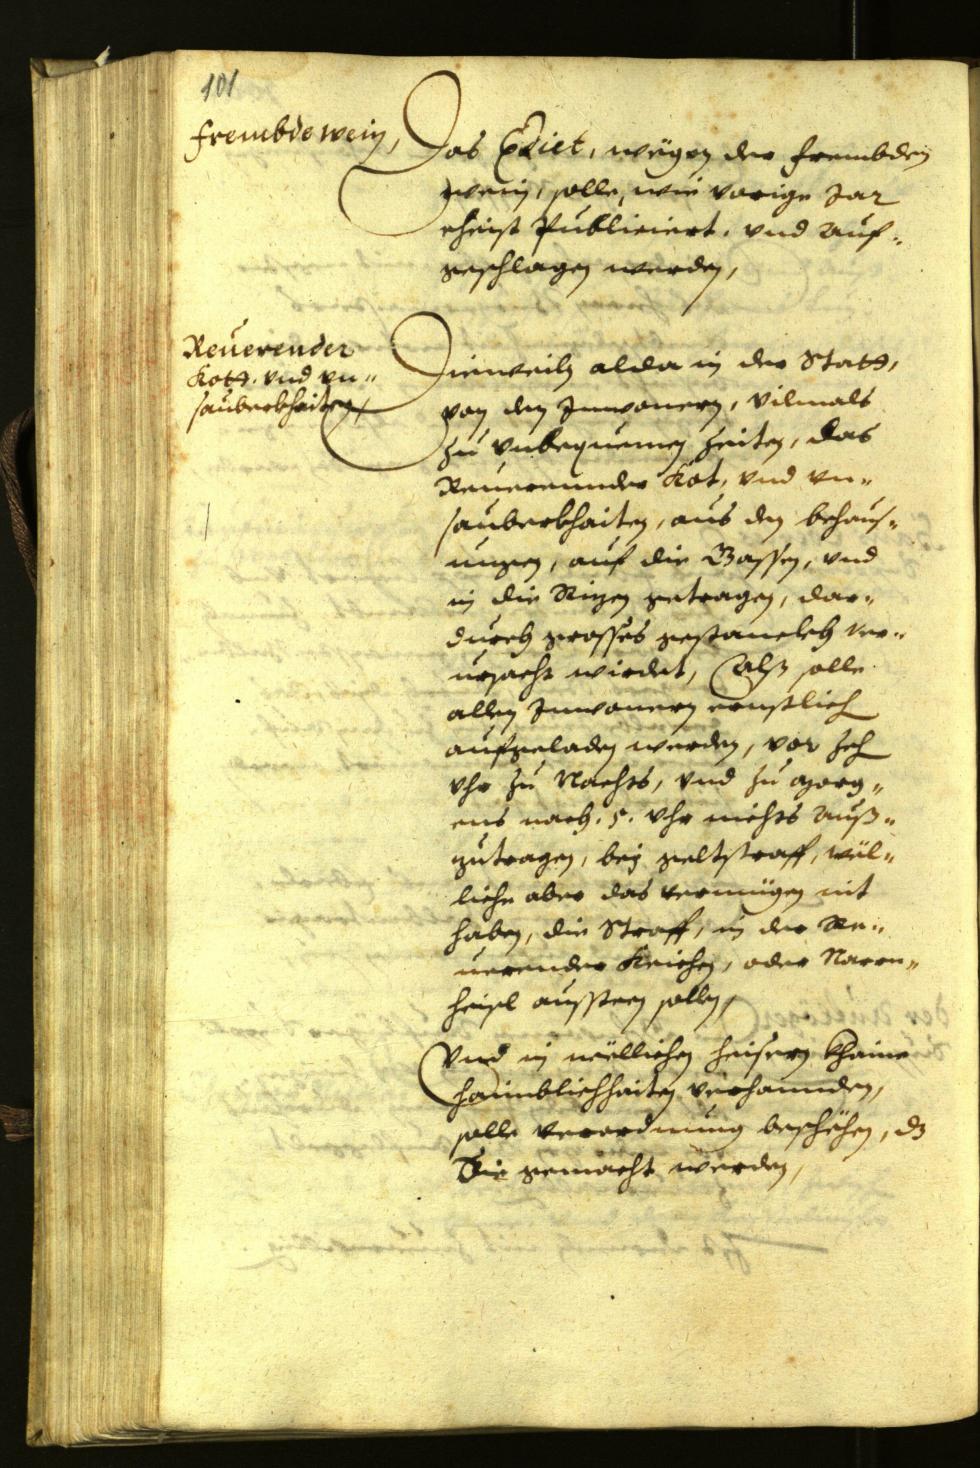 101
frembde wein,
Das Edict, wegen der frembden
wein, solle, wie vorige Jar
eheist Publiciert, vnd auf-
geschlagen werden,
Reuerender
Kott, vnd vn-
sauberkhaiten,
Dieweiln alda in der Statt,
von den Innwonern, vilmals
zu vnbequemen zeiten, das
Reuerennder Kot, vnd vn-
sauberkhaiten, aus den behaus-
ungen, auf die Gassen, vnd
in die Rizen getragen, dar-
durch grosses gestanckh ver-
ursacht wirdet, Alß solle
allen Innwonern ernstlich
aufgeladen werden, vor zeh
Vhr zu Nachts, vnd zu morg-
ens nach .5. Vhr nichts auß-
zutragen, bey geltstraff, wel-
liche aber das vermügen nit
haben, die Straff, in der Re-
uerender Keichen, oder Narrn-
heisl aussteen sollen,
Vnd in wellichen heisern khaine
haimblichhaiten verhannden,
solle verordnung beschehen, dz
Sie gemacht werden,